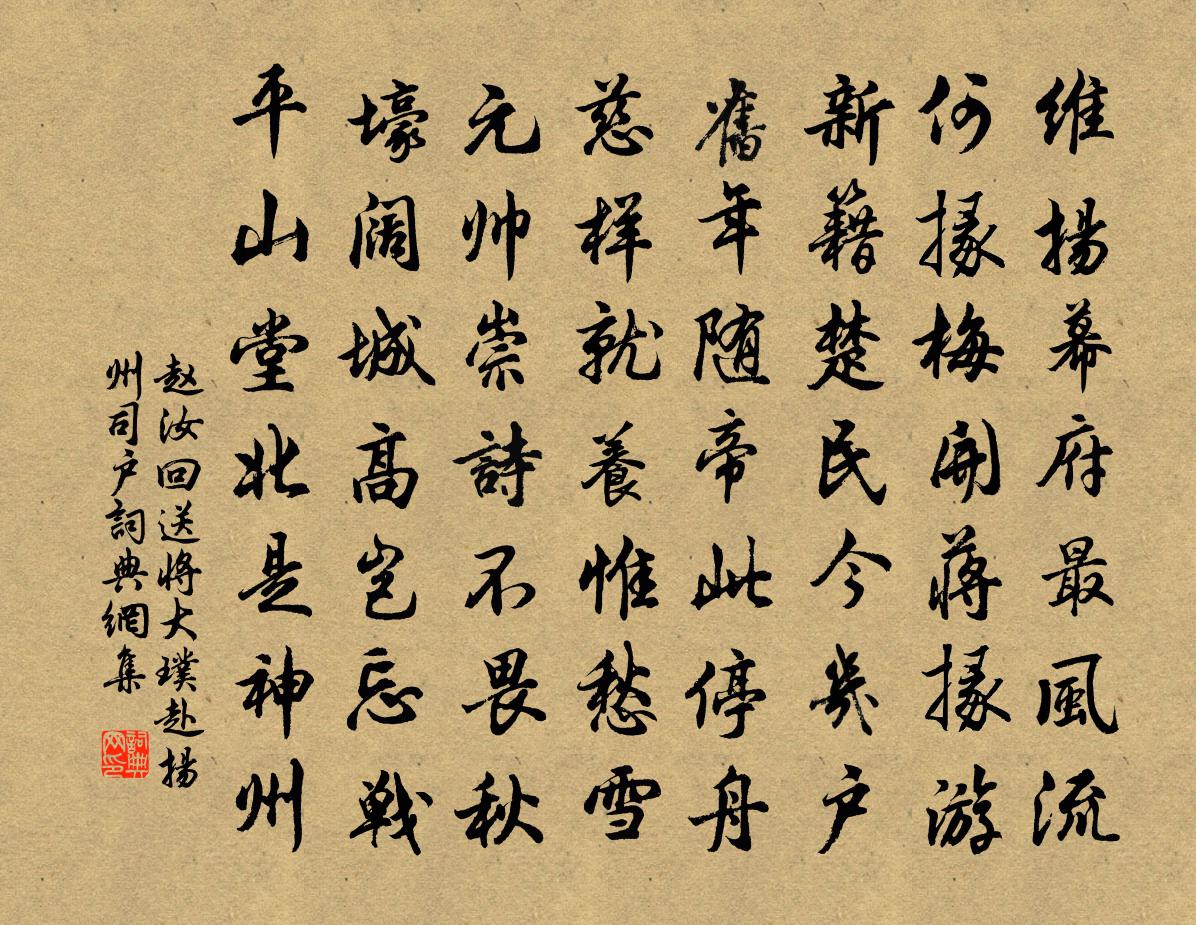 維揚幕府最風流
何掾梅開蔣掾游
新籍楚民今幾户
舊年隨帝此停舟
慈样就養惟愁雪
元帅崇詩不畏秋
壕阔城高岂忘戰
平山堂北是神州
赵汝回送将大璞赴揚
州司户詞典網集
詞典网印